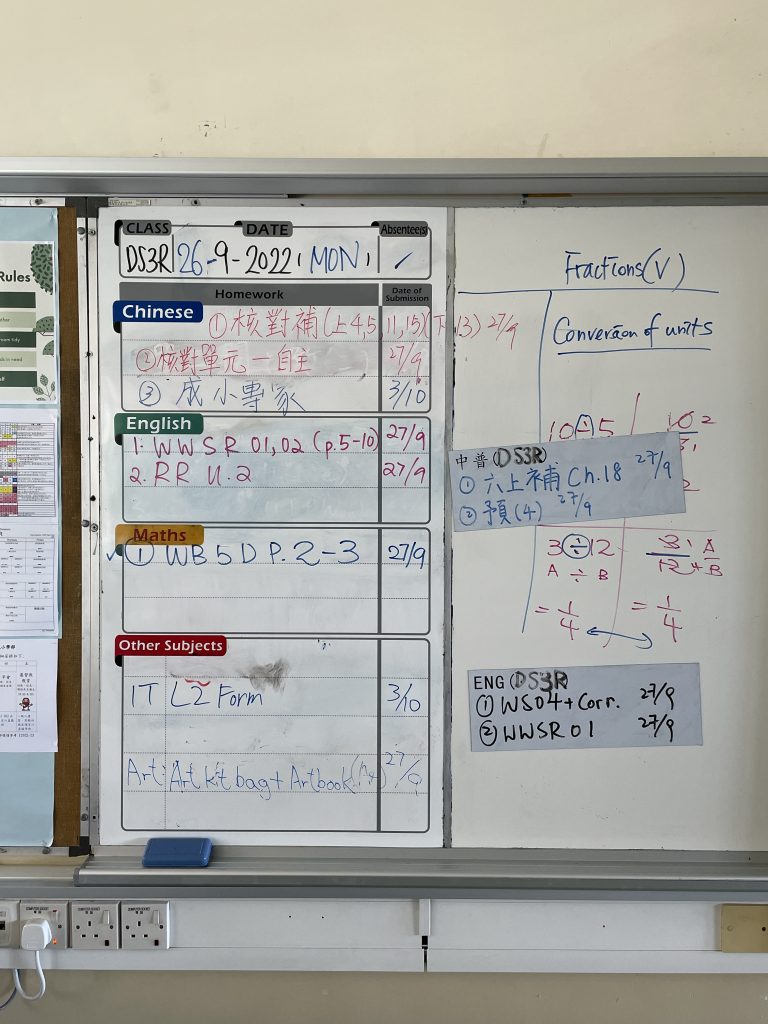 Rules
CLASS DATE Absentee(s)
DS3R 26-9-2022 (MON)
Homework Date of Submission
Chinese
① 核對補(上4,5 11,15)(下13) 27/9
② 核對單元一自主 27/9
③ 成小專家 3/10
English
1. WWSR 01,02 (p.5-10) 27/9
2. RR U.2 27/9
Maths
① WB5D P.2-3 27/9
Other Subjects
IT L2 Form 3/10
Art: Art kit bag + Artbook 27/9
Fractions(V)
Conversion of units
10÷5
10 2
中普(DS3R)
① 六上補 Ch.18 27/9
② 預(4) 27/9
3÷12
A ÷ B
= 1/4
3 1 A
12 4 B
= 1/4
ENG (DS3R)
① WS04+Corr. 27/9
② WWSR 01 27/9